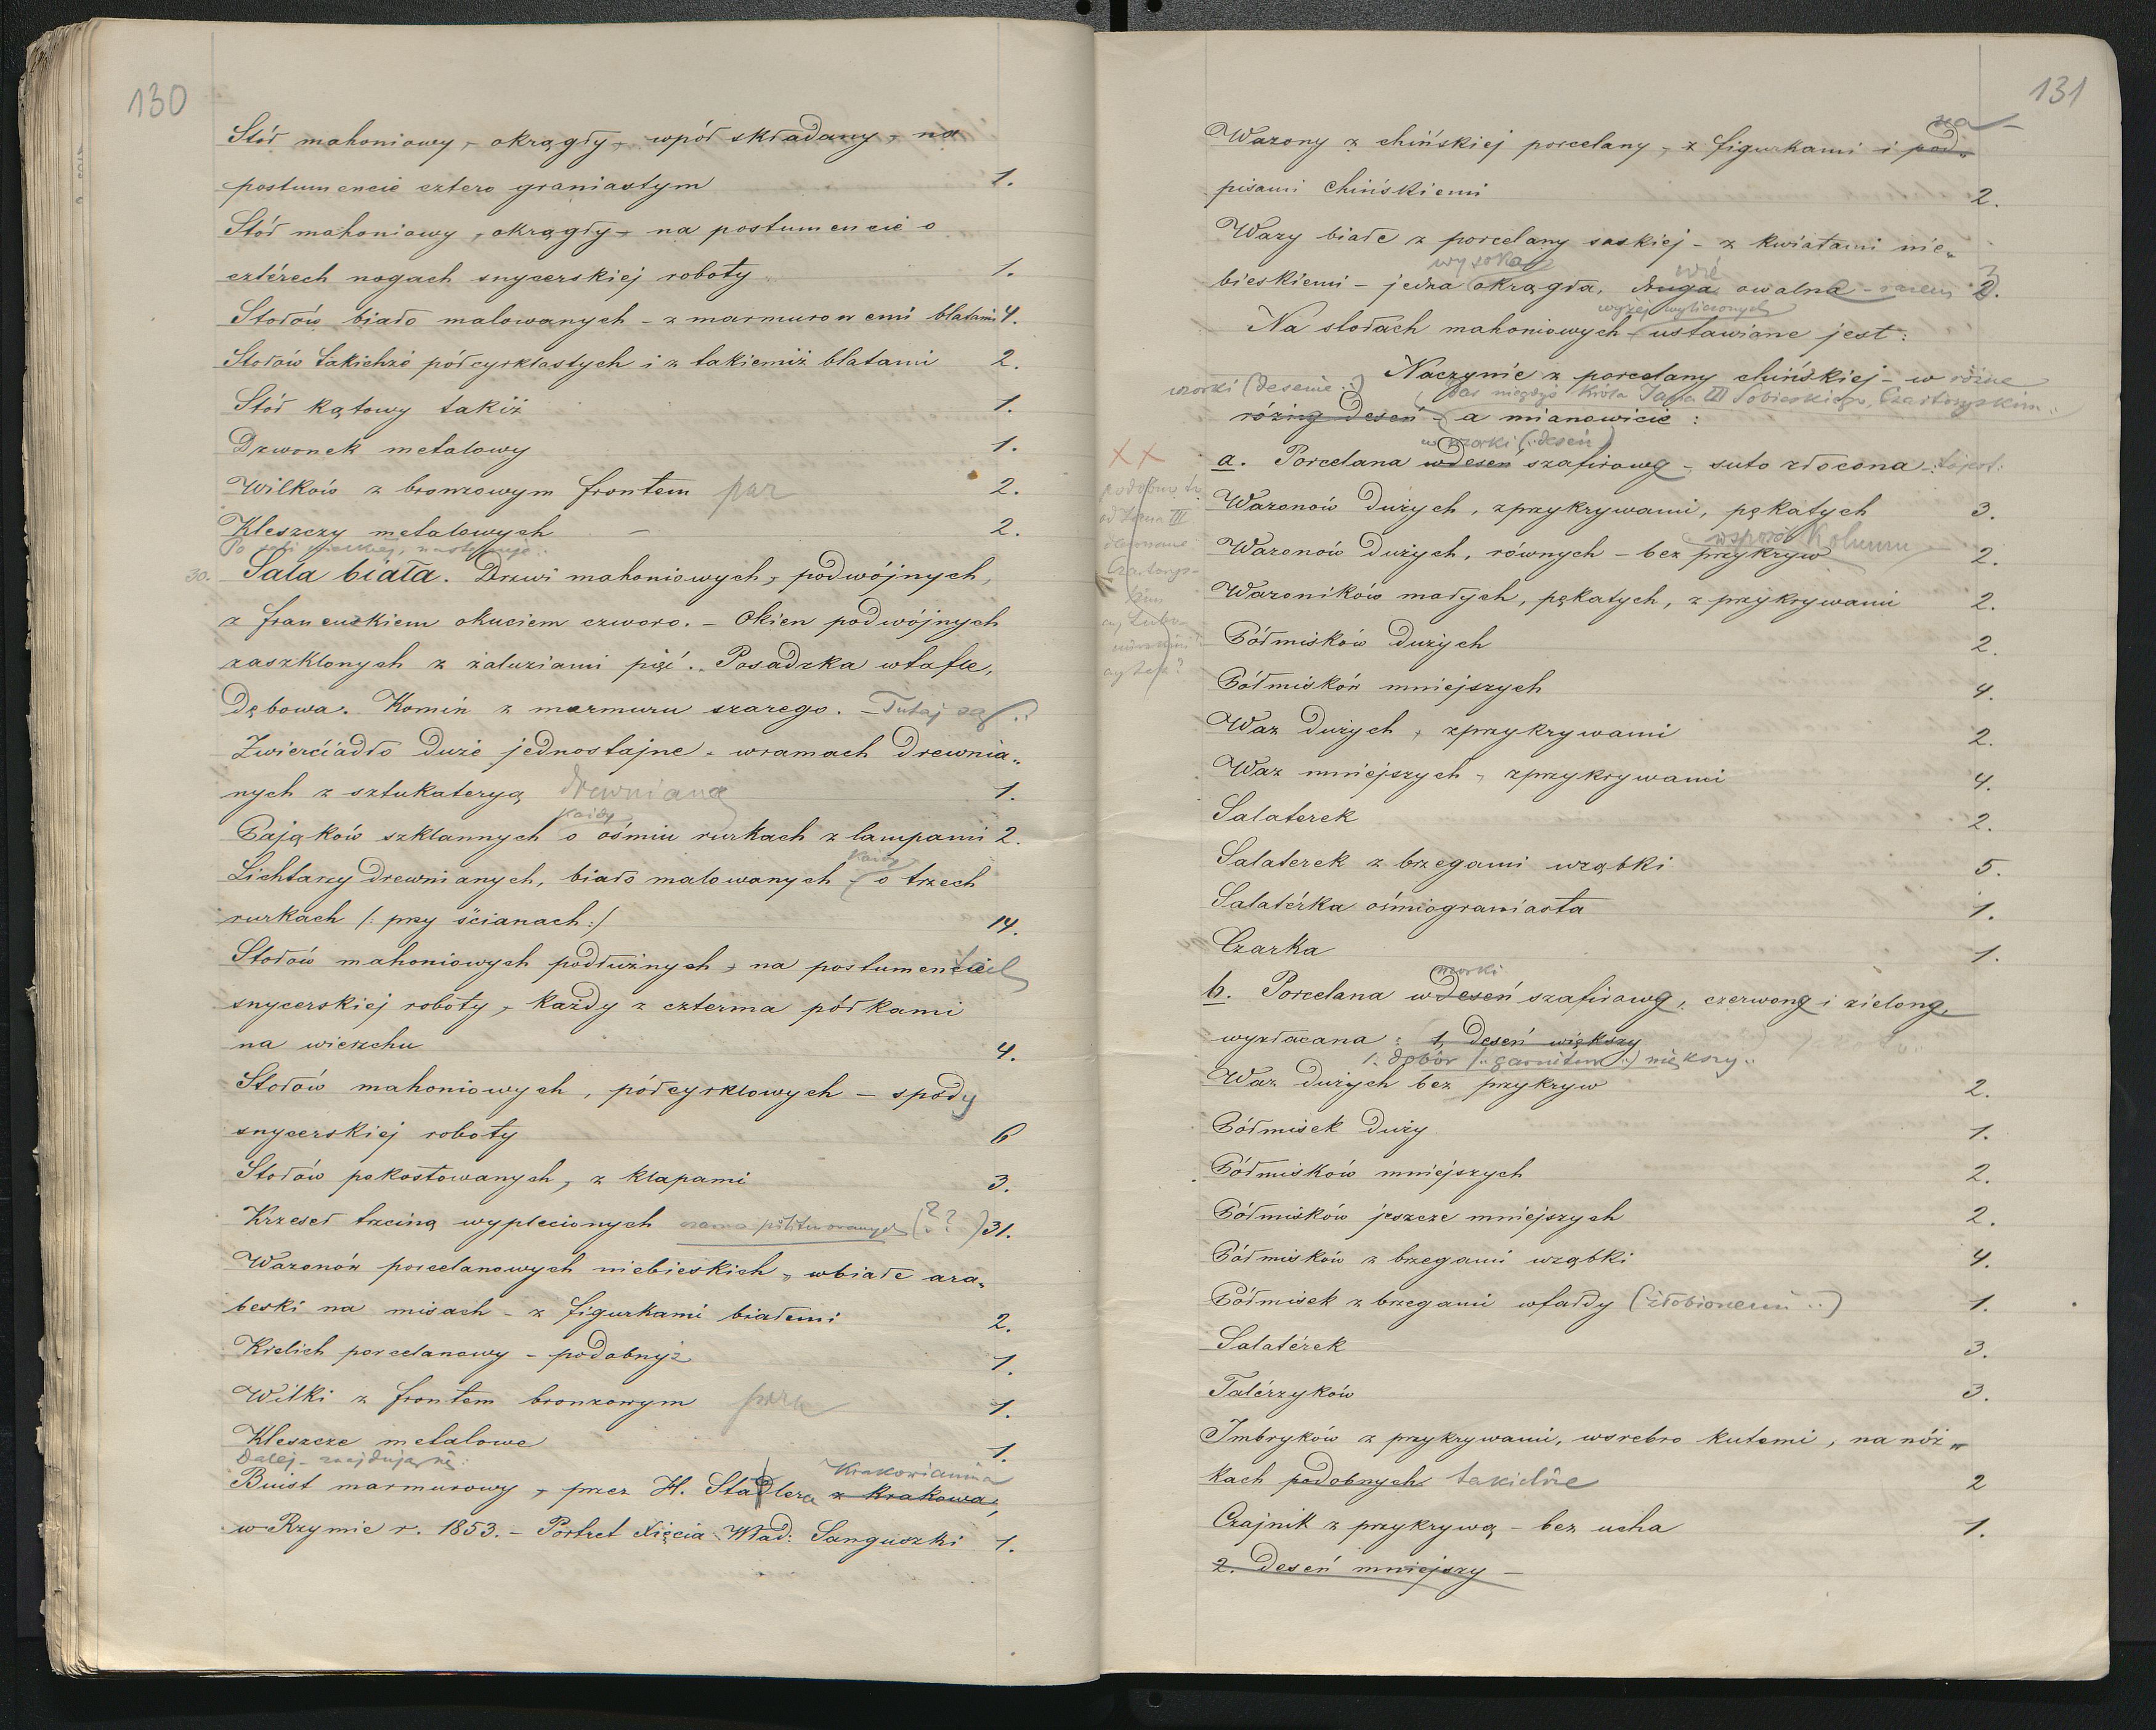 130
Stół mahoniowy, okrągły, wpół składany, na
postumencie cztero graniastym 1.
Stół mahoniowy, okrągły, na postumencie o
cztérech nogach snycerskiej roboty 1.
Stołów biało malowanych – z marmurowemi blatami 4.
Stołów takichże półcyrklastych i z takiemiż blatami 2.
Stół kątowy takiż 1.
Dzwonek metalowy 1.
Wilków z bronzowym frontem par 2.
Kleszczy metalowych – 2.
Po sali następuje:
30. Sala biała. Drzwi mahoniowych, podwójnych,
z francuzkiem okuciem czworo. – Okien podwójnych
zaszklonych z żaluziami pięć. Posadzka w tafle,
dębowa. Komin z marmuru szarego. – Tutaj są:
Zwierciadło duże jednostajne – w ramach drewnia„
nych z sztukateryą drewnianą 1.
każdy
Pająków szklannych o ośmiu rurkach z lampami 2.
każdy
Lichtarzy drewnianych, biało malowanych – o trzech
rurkach /: przy ścianach :/ 14.
Stołów mahoniowych podłużnych, na postumentach
snycerskiej roboty, każdy z czterma półkami
na wierzchu 4.
Stołów mahoniowych, półcyrklowych – spody
snycerskiej roboty 6
Stołów pokostowanych, z klapami 3.
Krzeseł trzciną wyplecionych czarno politurowanych (??) 31.
Wazonów porcelanowych niebieskich, w białe ara„
beski na misach – z figurkami białemi 2.
Kielich porcelanowy – podobnyż 1.
Wilki z frontem bronzowym para 1.
Kleszcze metalowe 1.
Dalej – znajdują się:
Krakowianina
Biust marmurowy, przez H. Stadlera z Krakowa,
w Rzymie r. 1853. – Portret Xięcia Wład: Sanguszki 1.
131
na
Wazony z chińskiej porcelany, z figurkami i pod„
pisami chińskiemi 2.
Wazy białe z porcelany saskiej – z kwiatami nie„
wysoka
bieskiemi – jedna okrągła, druga owalna – razem 2.
wyżej wyliczonych
Na stołach mahoniowych ustawiane jest:
Naczynie z porcelany chińskiej – w różne
wzorki (desenie:) dar niegdyś Króla Jana III Sobieskiego, Czartoryskim
różny deseń – a mianowicie:
w wzorki (:deseń)
a. Porcelana w deseń szafirowy – suto złocona
XX
podobno
od Jana III
Czartorys–
kim
czy też?
Wazonów dużych, z przykrywami, pękatych 3.
w sposób Kolumn
Wazonów dużych, równych – bez przykryw 2.
Wazoników małych, pękatych, z przykrywami 2.
Półmisków dużych 2.
Półmisków mniejszych 4.
Waz dużych, z przykrywami 2.
Waz mniejszych, z przykrywami 4.
Salaterek 2.
Salaterek z brzegami w ząbki 5.
Salatérka ośmiograniasta 1.
Czarka 1.
wzorki
b. Porcelana w deseń szafirowy, czerwony i zielony,
wyzłacana: 1, Deseń większy
1. dobór /: garnitur :/ większy
Waz dużych bez przykryw 2.
Półmisek duży 1.
Półmisków mniejszych 2.
Półmisków jeszcze mniejszych 2.
Półmisków z brzegami w ząbki 4.
Półmisek z brzegami w fałdy (żłobionemi:) 1.
Salatérek 3.
Talérzyków 3.
Imbryków z przykrywami, w srebro kutemi, na nóż„
kach podobnych takichże 2
Czajnik z przykrywą – bez ucha 1.
2. Deseń mniejszy –